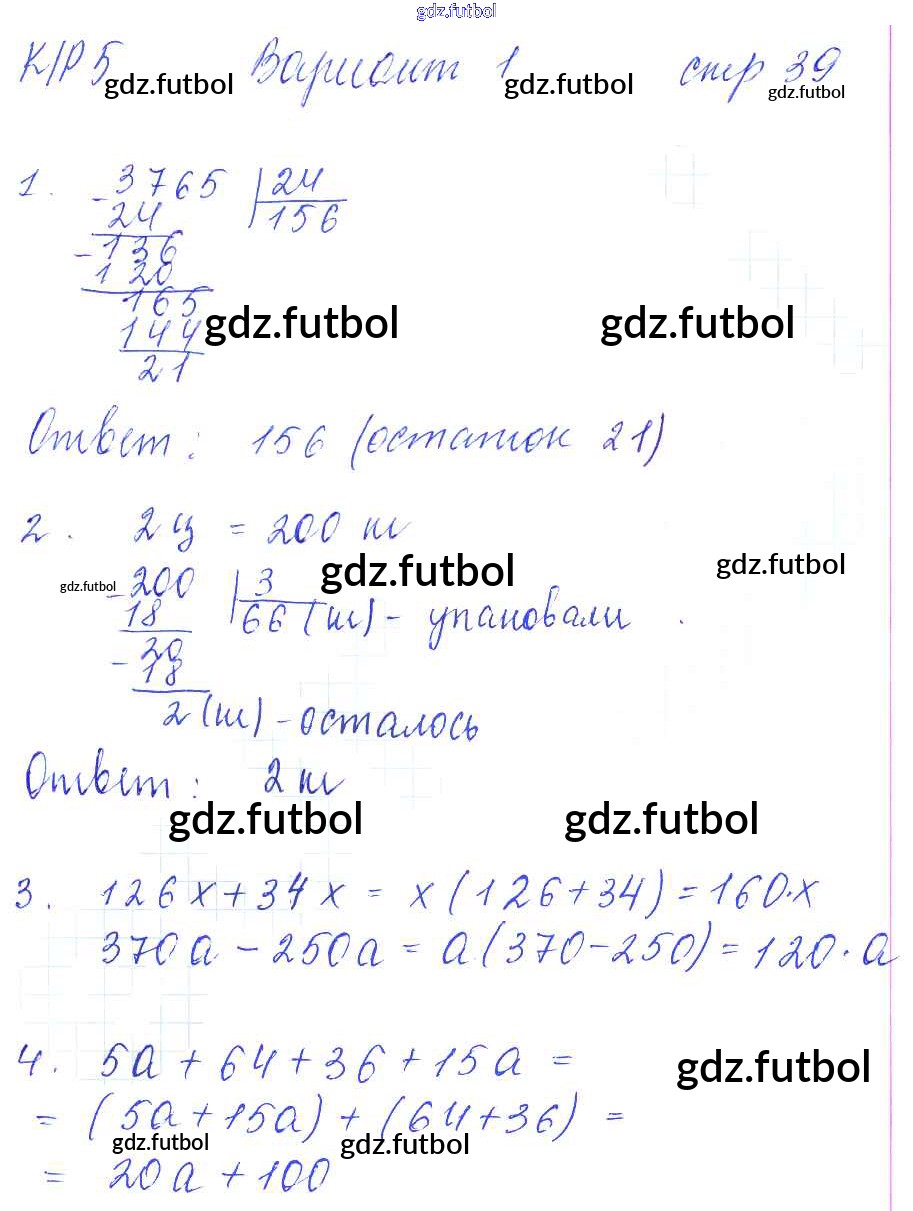 gdz.futbol
К/Р 5 Вариант 1 стр 39
gdz.futbol gdz.futbol gdz.futbol
1. - 3765 | 24
24 | 156
- 136
120
165
144
21
gdz.futbol gdz.futbol
Ответ: 156 (остаток 21)
2. 2 ц = 200 кг
gdz.futbol gdz.futbol gdz.futbol
- 200 | 3
18 | 66 (кг) - упаковали
- 20
18
2 (кг) - осталось
Ответ: 2 кг
gdz.futbol gdz.futbol
3. 126x + 34x = x(126+34) = 160·x
370a - 250a = a(370-250) = 120·a
4. 5a + 64 + 36 + 15a =
gdz.futbol
= (5a+15a) + (64+36) =
gdz.futbol gdz.futbol
= 20a + 100